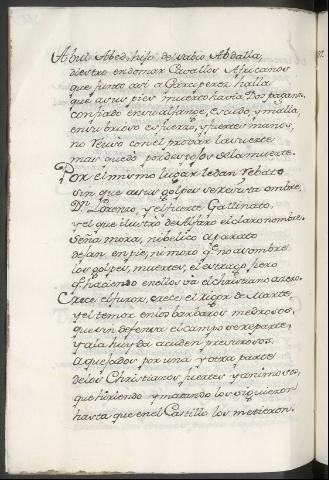 Abul Abed, hijo del sabio Abdalla,
diestro en domar Cavallos Africanos
que junto asi a Garci perez halla
que a sus pies muerto hasta Dos paganos
confiado en su alfange, escudo, y malla,
en su brioso esfuerzo, y fuertes manos,
no reusò con el provar la suerte
mas quedò por despojos de la muerte.
Por el mismo lugar le dan rebato
sin que a sus golpes se resista ombre,
Dn. Lorenzo, y el fuerte Gallinato,
y el que ilustrò de Alfaro el claro nombre.
Seña mora, ni belico aparato
dejan en pie, ni moro qe. no asombre
los golpes, muertes, el estrago fiero
qe. haciendo en ellos va el christiano azero.
Crece el furor, crece el rigor de Marte,
y el temor en los barbaros medrosos,
que sin defensa el campo se reparte,
y a la huyda acuden presurosos.
Aquejados por una y otra parte
de los Christianos fuertes y animosos,
que hiriendo y matando los siguieron
hasta que en el Castillo los metieron.